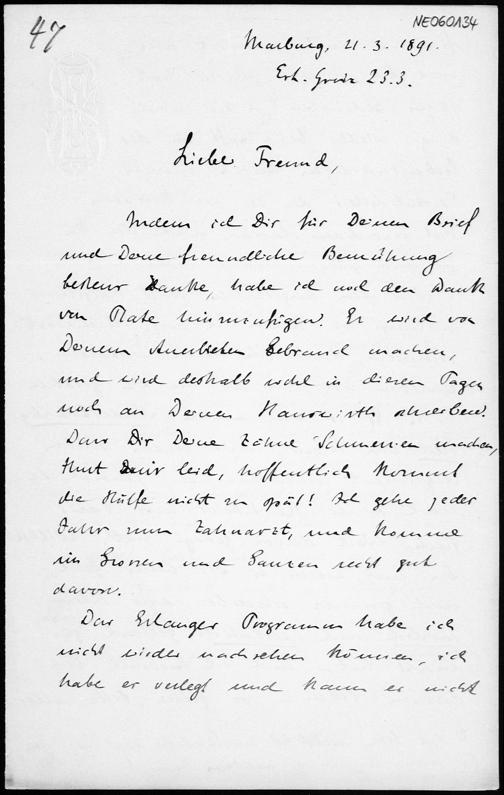 47
NE060134
Marburg, 21.3.1891.
Erh. Greiz 23.3.
Liebe Freund,
Indem ich Dir für Deinen Brief
und Deine freundliche Bemühung
bestens danke, habe ich noch den Dank
von Plate hinzuzufügen. Er wird von
Deinem Anerbieten Gebrauch machen,
und wird deshalb wohl in diesen Tagen
noch an Deinen Hauswirth schreiben.
Dass Dir Deine Zähne Schmerzen machen,
thut mir leid, hoffentlich kommt
die Hülfe nicht zu spät! Ich gehe jedes
Jahr zum Zahnarzt, und komme
im Grossen und Ganzen recht gut
davon.
Das Erlanger Programm habe ich
nicht wieder nachsehen können, ich
habe es verlegt und kann es nicht